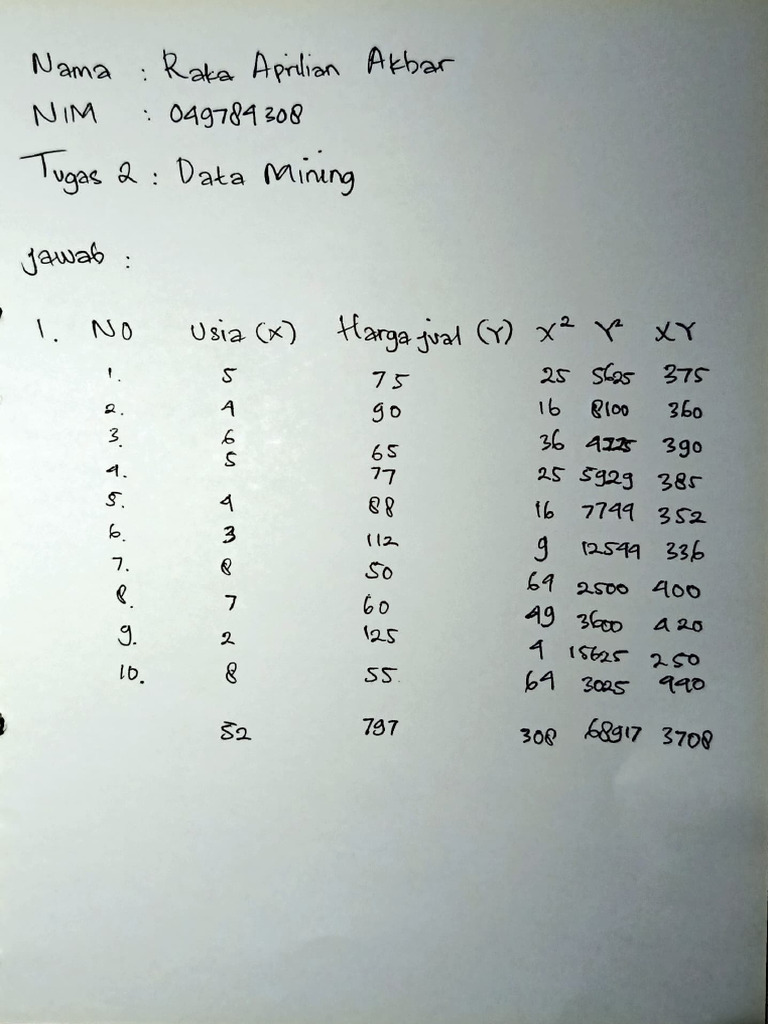 Nama : Raka Aprilian Akbar
NIM : 049784308
Tugas 2 : Data Mining
jawab :
1. NO Usia (X) Harga jual (Y) X² Y² XY
1. 5 75 25 5625 375
2. 4 90 16 8100 360
3. 6 65 36 4225 390
4. 5 77 25 5929 385
5. 4 88 16 7744 352
6. 3 112 9 12544 336
7. 8 50 64 2500 400
8. 7 60 49 3600 420
9. 2 125 4 15625 250
10. 8 55 64 3025 440
52 797 308 68917 3708